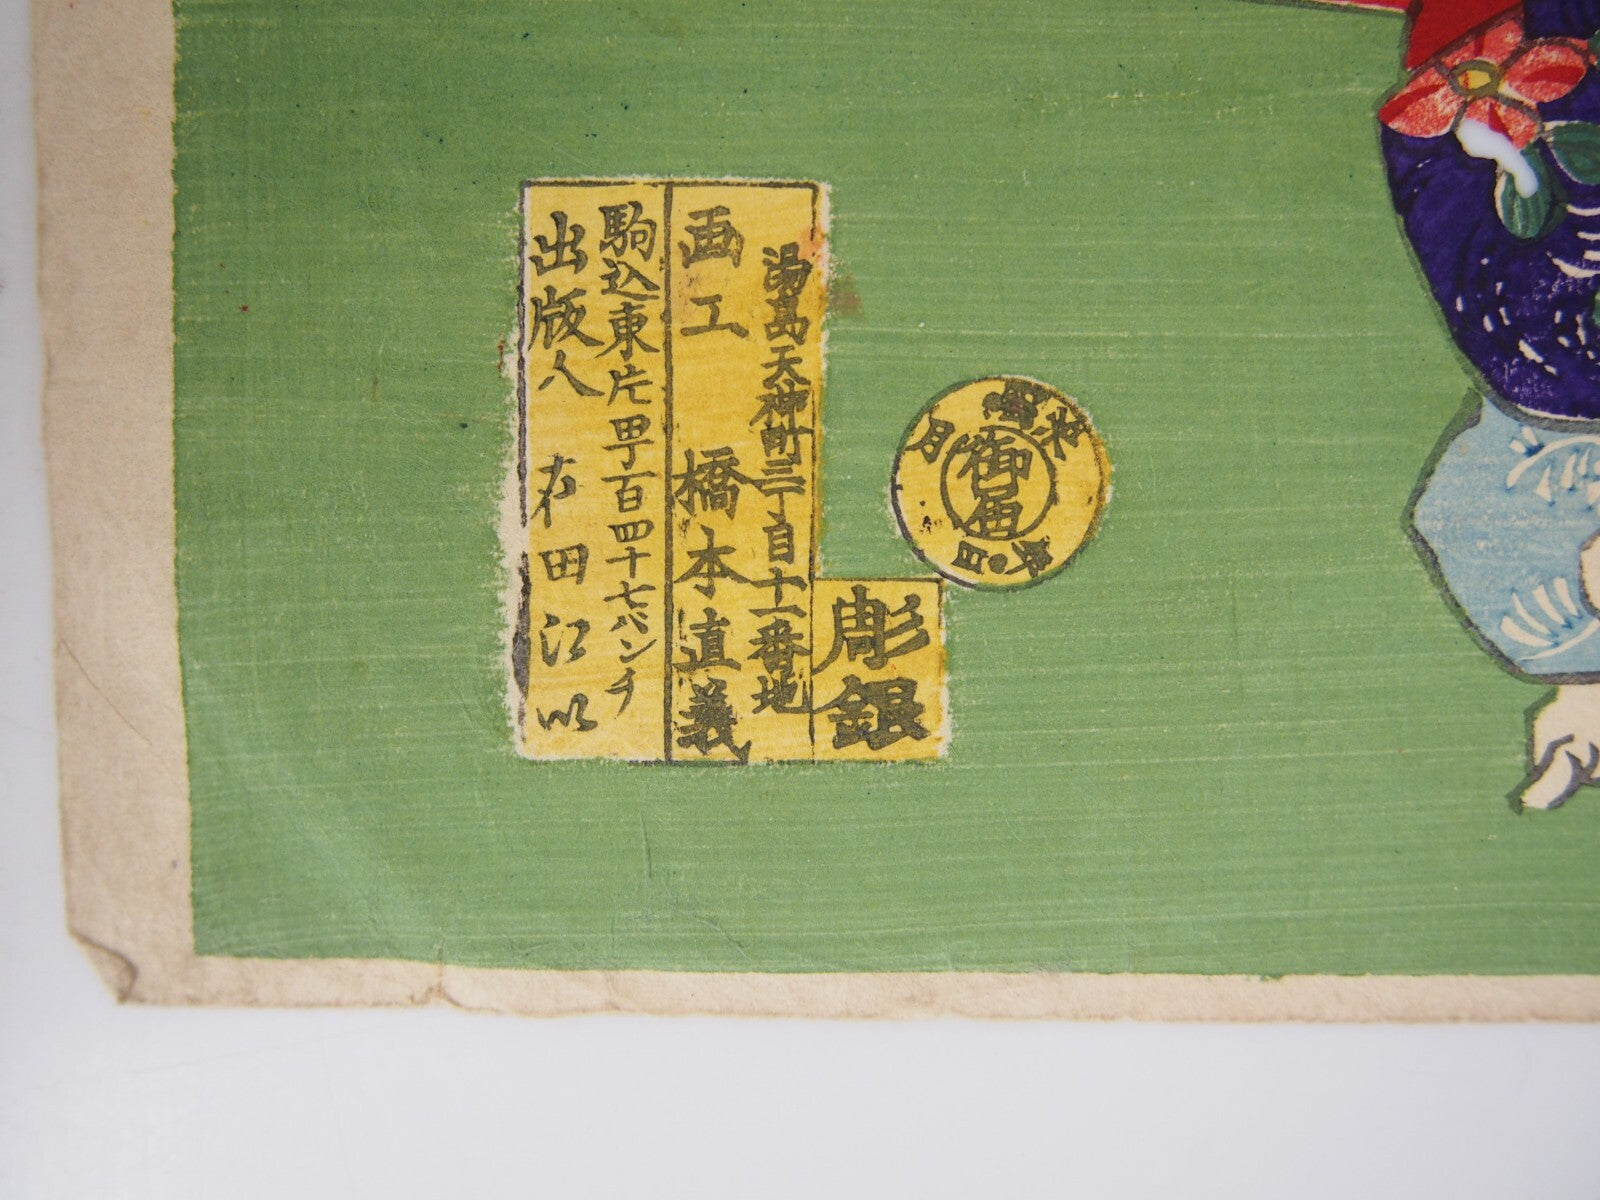 彫銀
湯島天神町三丁目十一番地
画工 橋本直義
駒込東片甼百四十七バンチ
出版人 田江
御届
月
日